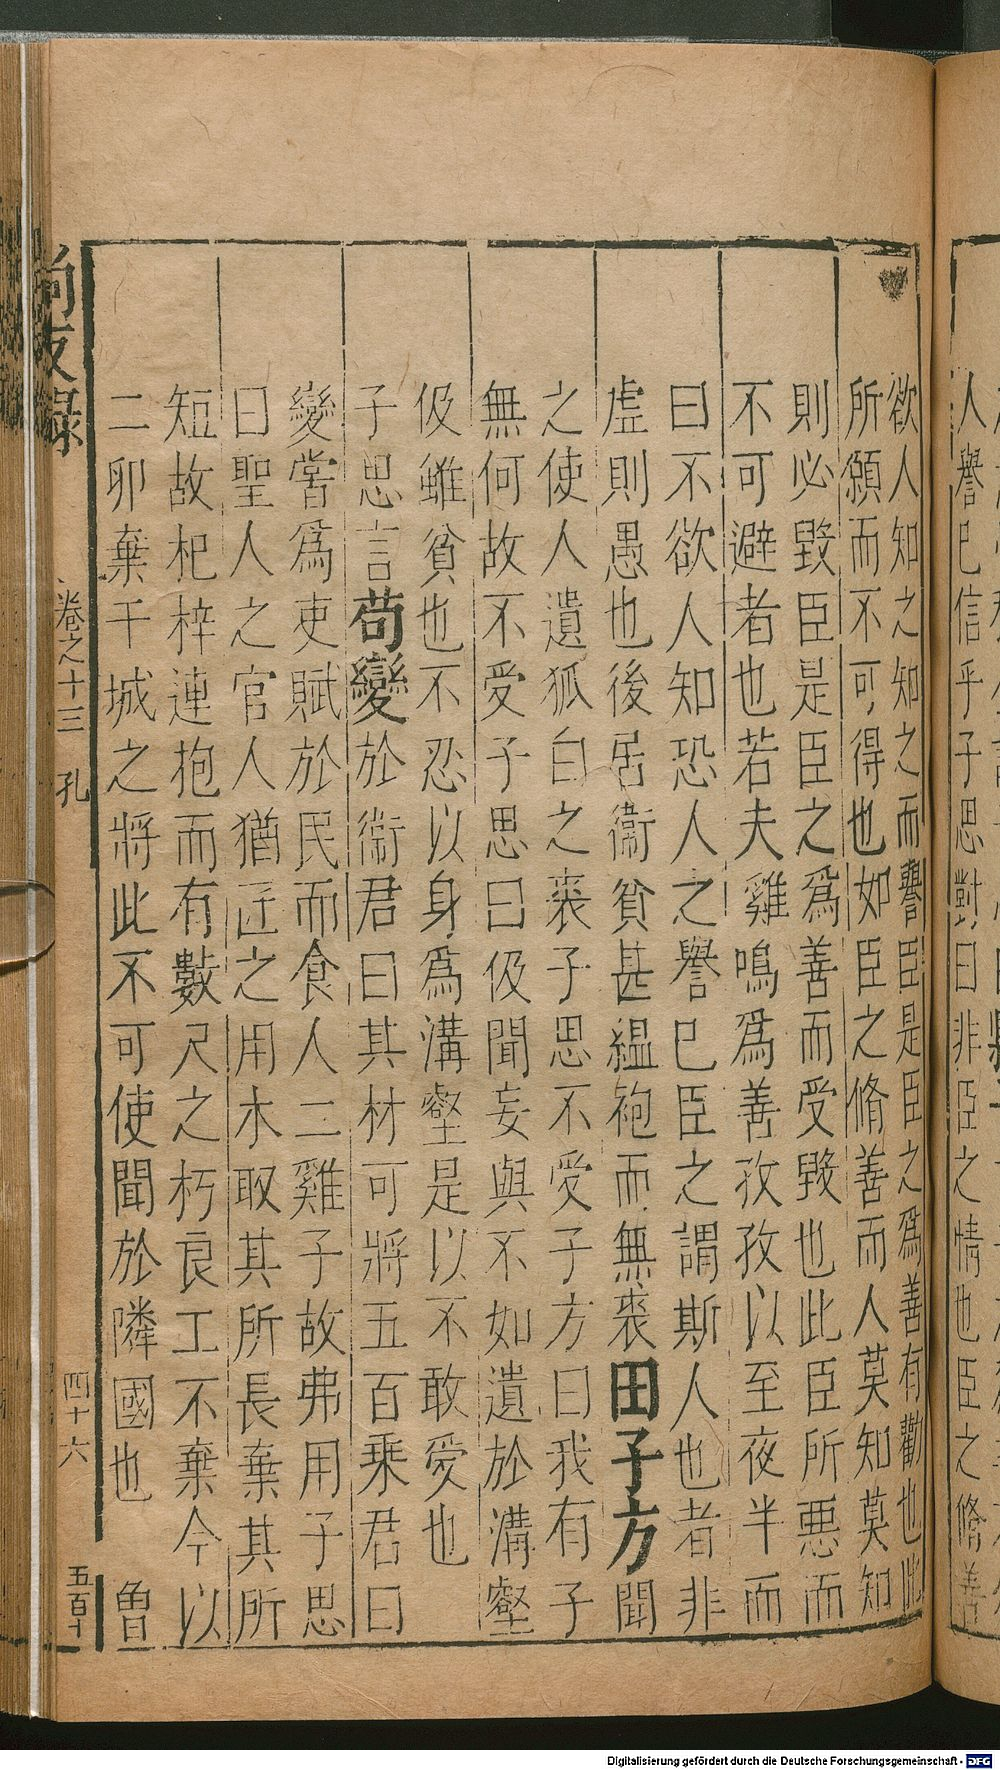 人譽己信乎子思對曰非臣之情也臣之脩善
欲人知之知之而譽臣是臣之爲善有勸也此
所願而不可得也如臣之脩善而人莫知莫知
則必毀臣是臣之爲善而受毀也此臣所悪而
不可避者也若夫雞鳴爲善孜孜以至夜半而
曰不欲人知恐人之譽巳臣之謂斯人也者非
虛則愚也後居衞貧甚縕袍而無裘田子方聞
之使人遺狐白之裘子思不受子方曰我有子
無何故不受子思曰伋聞妄與不如遺於溝壑
伋雖貧也不忍以身爲溝壑是以不敢愛也
子思言苟變於衞君曰其材可將五百乘君曰
變嘗爲吏賦於民而食人二雞子故弗用子思
曰聖人之官人猶匠之用木取其所長棄其所
短故杞梓連抱而有數尺之朽良工不棄今以
二卵棄干城之將此不可使聞於隣國也　魯
尙友錄　卷之十三　孔　四十六　五百十
Digitalisierung gefördert durch die Deutsche Forschungsgemeinschaft - DFG